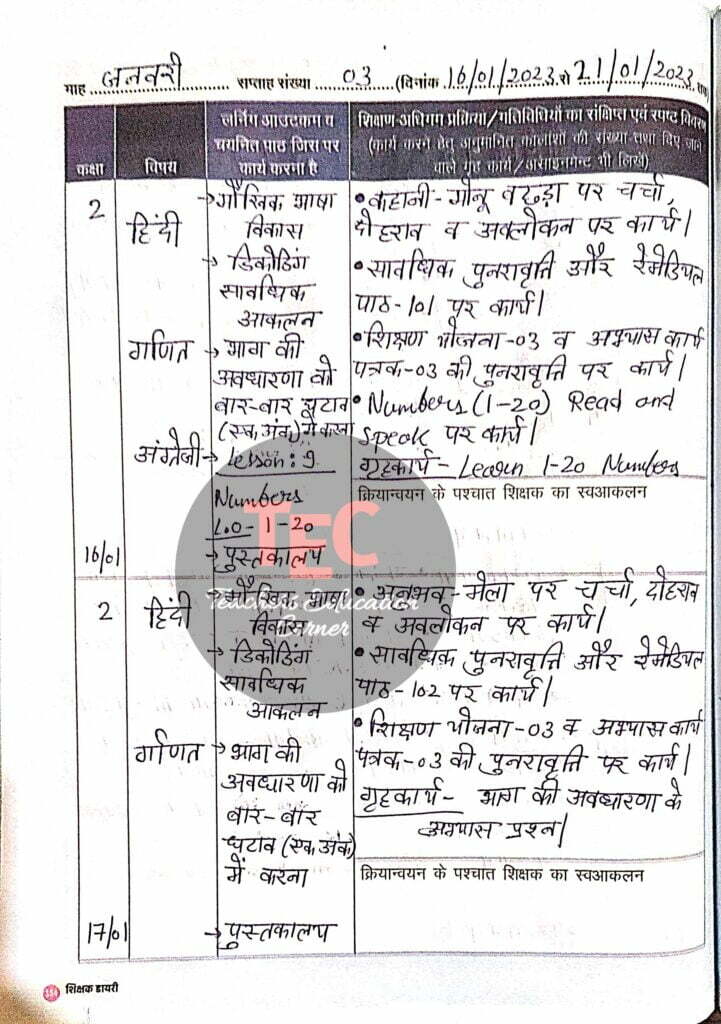 माह जनवरी सप्ताह संख्या 03 (दिनांक 16/01/2023 से 21/01/2023 तक)
कक्षा
विषय
लर्निंग आउटकम व
चयनित पाठ जिस पर
कार्य करना है
शिक्षण-अधिगम प्रक्रिया/गतिविधियों का संक्षिप्त एवं स्पष्ट विवरण
(कार्य करने हेतु अनुमानित कालांशों की संख्या तथा दिए जाने
वाले गृह कार्य/असाइनमेन्ट भी लिखें)
2
हिंदी
→ मौखिक भाषा
विकास
→ डिकोडिंग
सावधिक
आकलन
• कहानी- गोनू बछड़ा पर चर्चा,
दोहराव व अवलोकन पर कार्य।
• सावधिक पुनरावृत्ति और रेमेडियल
पाठ-101 पर कार्य।
गणित
→ भाग की
अवधारणा को
बार-बार घटाव
(एक अंक) में करना
• शिक्षण योजना-03 व अभ्यास कार्य
पत्रक-03 की पुनरावृत्ति पर कार्य।
अंग्रेजी
→ Lesson: 9
Numbers
L.O- 1-20
• Numbers (1-20) Read and
speak पर कार्य।
गृहकार्य- Learn 1-20 Numbers
क्रियान्वयन के पश्चात शिक्षक का स्वआकलन
16/01
→ पुस्तकालय
TEC
Teachers Educator
Corner
2
हिंदी
→ मौखिक भाषा
विकास
→ डिकोडिंग
सावधिक
आकलन
• अनुभव- मेला पर चर्चा, दोहराव
व अवलोकन पर कार्य।
• सावधिक पुनरावृत्ति और रेमेडियल
पाठ-102 पर कार्य।
गणित
→ भाग की
अवधारणा को
बार-बार
घटाव (एक अंक)
में करना
• शिक्षण योजना-03 व अभ्यास कार्य
पत्रक-03 की पुनरावृत्ति पर कार्य।
गृहकार्य- भाग की अवधारणा के
अभ्यास प्रश्न।
क्रियान्वयन के पश्चात शिक्षक का स्वआकलन
17/01
→ पुस्तकालय
शिक्षक डायरी